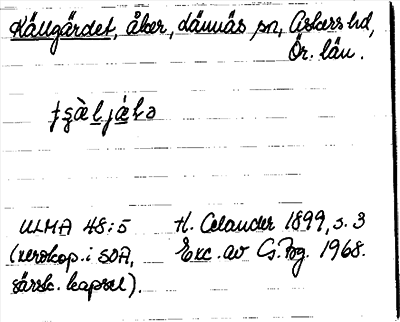 Källgärdet, åker, Lännäs sn, Askers hd,
Ör. län.
ULMA 48:5 H. Celander 1899, s. 3
(xerokop. i SOA, Exc. av CS.Bg. 1968.
särsk. kapsel).